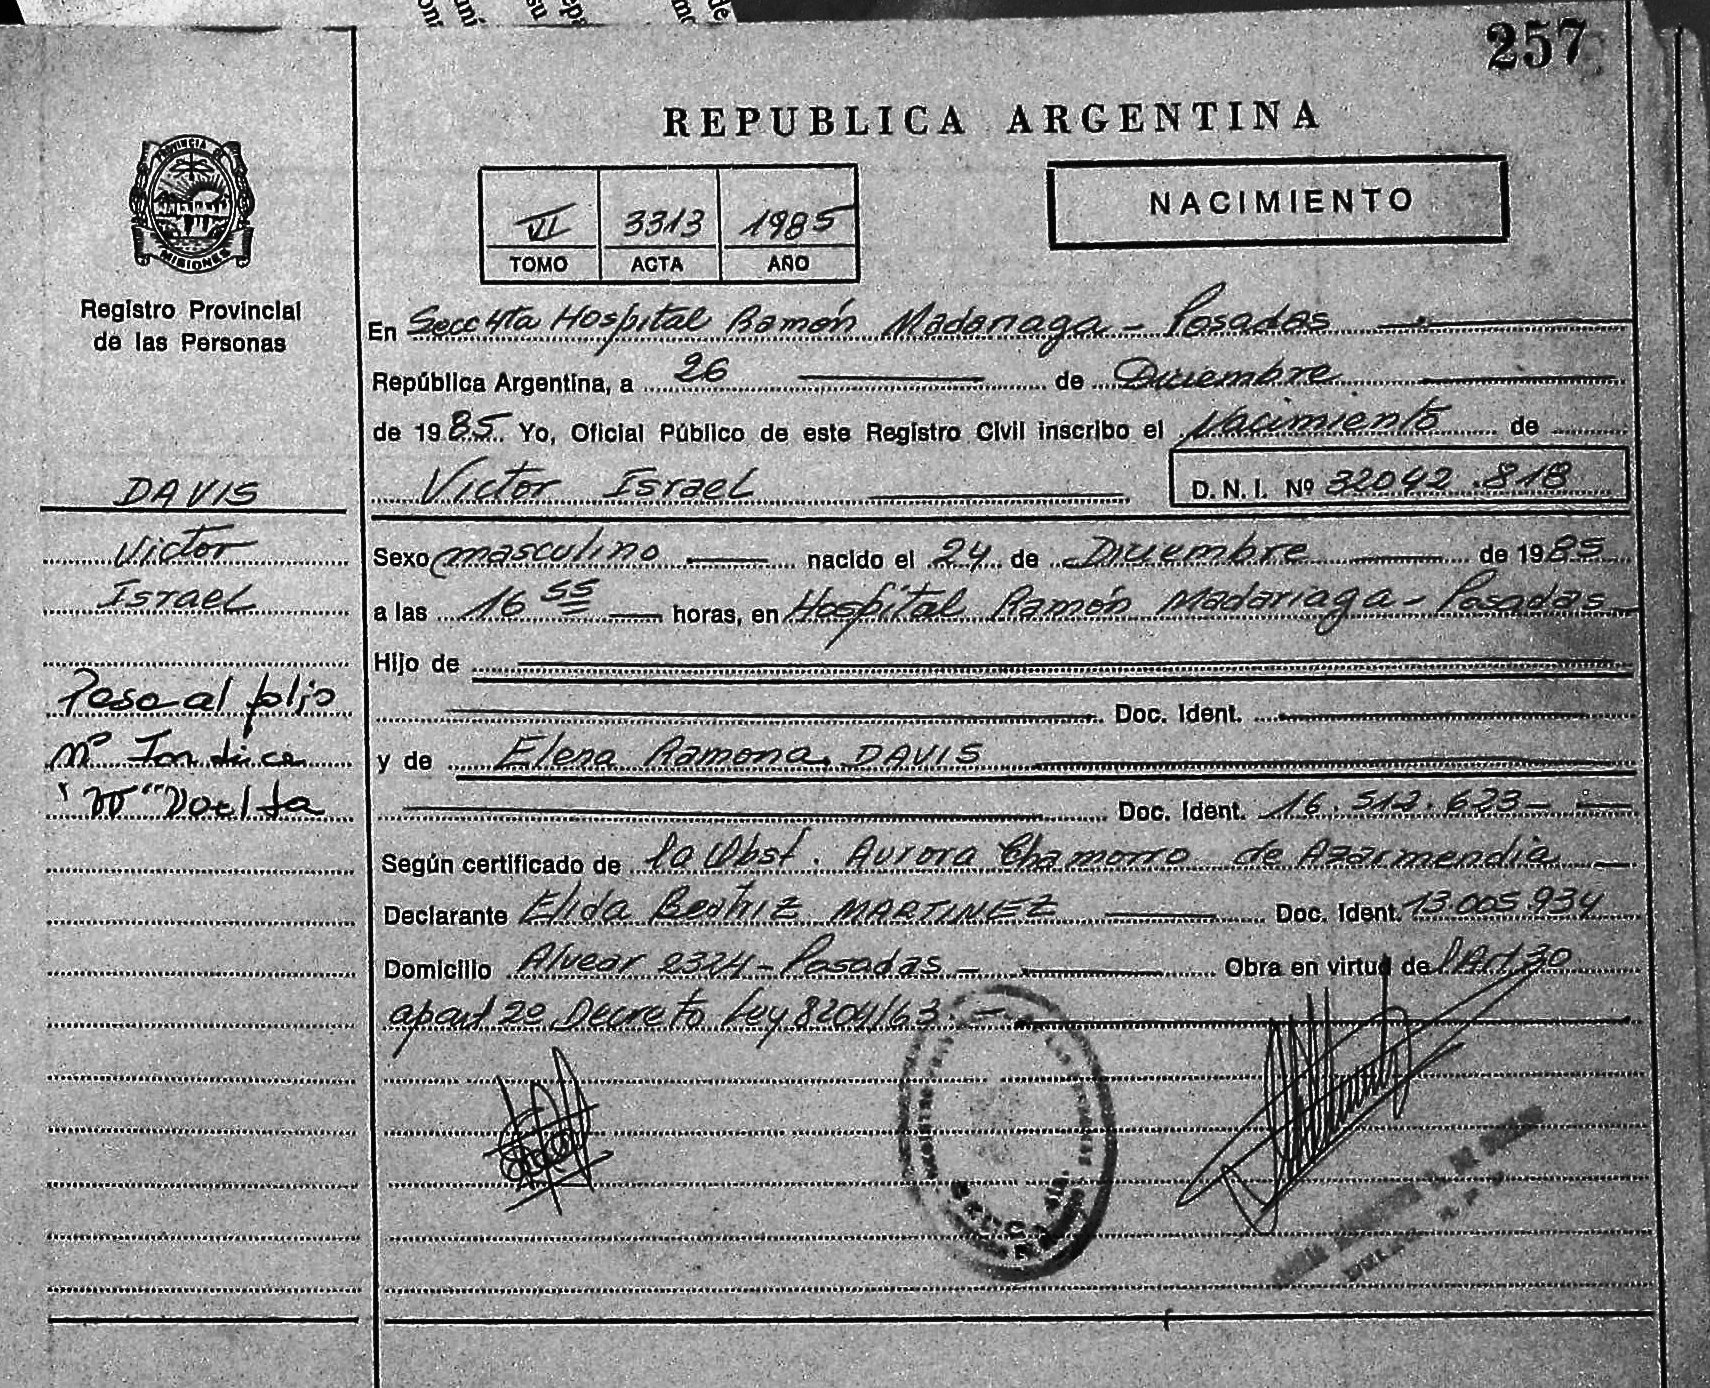 257
REPUBLICA ARGENTINA
PROVINCIA DE
MISIONES
Registro Provincial
de las Personas
VI 3313 1985
TOMO ACTA AÑO
NACIMIENTO
En Secc 4ta Hospital Ramón Madariaga - Posadas
República Argentina, a 26 de Diciembre
de 1985 Yo, Oficial Público de este Registro Civil inscribo el Nacimiento de
Victor Israel D. N. I. Nº 32042.818
DAVIS
Victor
Israel
Pasa al folio
Nº Indice
Vuelta
Sexo masculino nacido el 24 de Diciembre de 1985
a las 16 55 horas, en Hospital Ramón Madariaga - Posadas
Hijo de
Doc. Ident.
y de Elena Ramona DAVIS
Doc. Ident. 16.512.623-
Según certificado de la Obst. Aurora Chamorro de Azarmendia
Declarante Elida Beatriz MARTINEZ Doc. Ident. 13.005.934
Domicilio Alvear 2324 - Posadas - Obra en virtud del Art 30
apart 2º Decreto Ley 8204/63.-